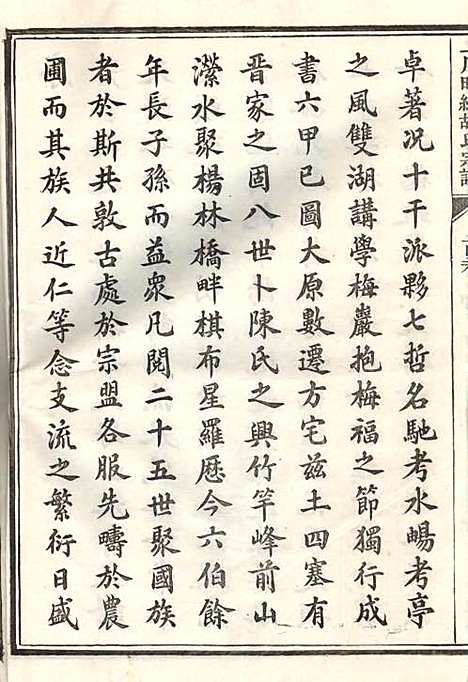 卓著况十干派夥七哲名馳考水暢考亭
之風雙湖講學梅巖抱梅福之節獨行成
書六甲已圖大原數遷方宅兹土四塞有
晉家之固八世卜陳氏之興竹竿峰前山
瀠水聚楊林橋畔棋布星羅歴今六伯餘
年長子孫而益衆凡閱二十五世聚國族
者於斯共敦古處於宗盟各服先疇於農
圃而其族人近仁等念支流之繁衍日盛